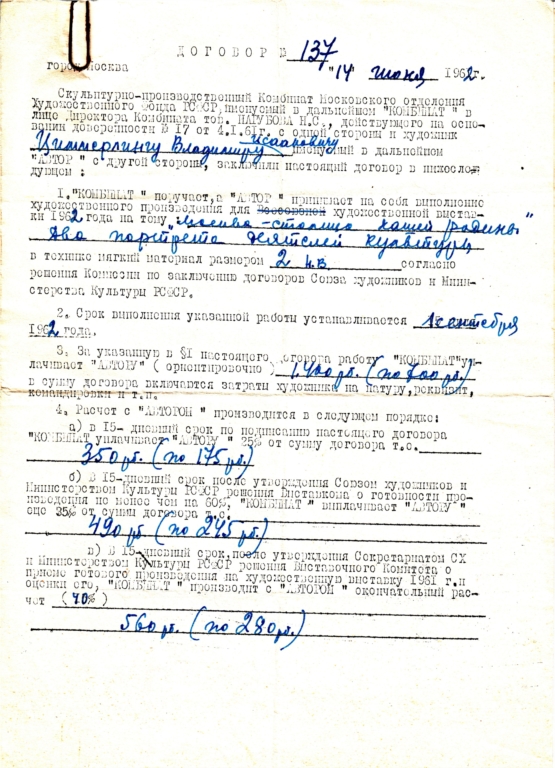 ДОГОВОР № 137
город Москва "14" июня 1962г.
Скульптурно-производственный Комбинат Московского отделения
Художественного Фонда РСФСР, именуемый в дальнейшем "КОМБИНАТ" в
лице Директора Комбината тов. Н.С., действующего на осно-
вании доверенности № 17 от 4.I.61г. с одной стороны и художник
Циммерлингу Владимиру Исааковичу именуемый в дальнейшем
"АВТОР" с другой стороны, заключили настоящий договор в нижеслед-
дующем:
I. "КОМБИНАТ" поручает, а "АВТОР" принимает на себя выполнение
художественного произведения для художественной выстав-
ки 1962 года на тему "Москва-столица нашей родины"
Два портрета деятелей культуры
в технике мягкий материал размером 2 н.в. согласно
решения Комиссии по заключению договоров Союза художников и Мини-
стерства Культуры РСФСР.
2. Срок выполнения указанной работы устанавливается 1 сентября
1962 года.
3. За указанную в §I настоящего договора работу "КОМБИНАТ" уп-
лачивает "АВТОРУ" (ориентировочно) 1.400 рб. (по 700 рб.)
в сумму договора включаются затраты художника на натуру, реквизит,
командировки и т.п.
4. Расчет с "АВТОРОМ" производится в следующем порядке:
а) в 15- дневный срок по подписанию настоящего договора
"КОМБИНАТ уплачивает "АВТОРУ" 25% от сумму договора т.е.
350 рб. (по 175 рб.)
б) В 15-дневный срок после утверждения Союзом художников и
Министерством Культуры РСФСР решения Выставкома о готовности про-
изведения не менее чем на 60%, "КОМБИНАТ" выплачивает "АВТОРУ"
еще 35% от суммы договора т.е.
490 рб. (по 245 рб.)
в) В 15-дневный срок после утверждения Секретариатом СХ
и Министерством Культуры РСФСР решения Выставочного Комитета о
приеме готового произведения на художественную выставку 1961 г. и
оценки его, "КОМБИНАТ" производит с "АВТОРОМ" окончательный рас-
чет (40%)
560 рб. (по 280 рб.)